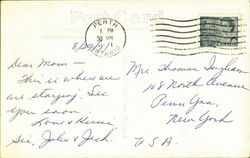 Post Card
PERTH
PM
ONTARIO
Dear Mom —
This is where we
are staying. See
you soon.
Love & Kisses
Sis, John & Jack.
Mrs. Thomas Ingham
North Avenue
Penn Yan,
New York
U.S.A.